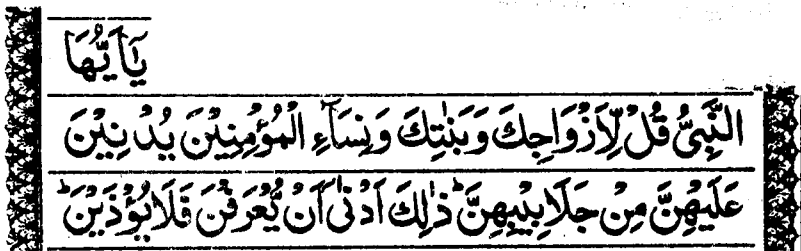 يٰۤاَيُّهَا
النَّبِىُّ قُلْ لِّاَزْوَاجِكَ وَبَنٰتِكَ وَنِسَآءِ الْمُؤْمِنِيْنَ يُدْنِيْنَ
عَلَيْهِنَّ مِنْ جَلَابِيْبِهِنَّ ؕ ذٰلِكَ اَدْنٰٓى اَنْ يُّعْرَفْنَ فَلَا يُؤْذَيْنَ ؕ